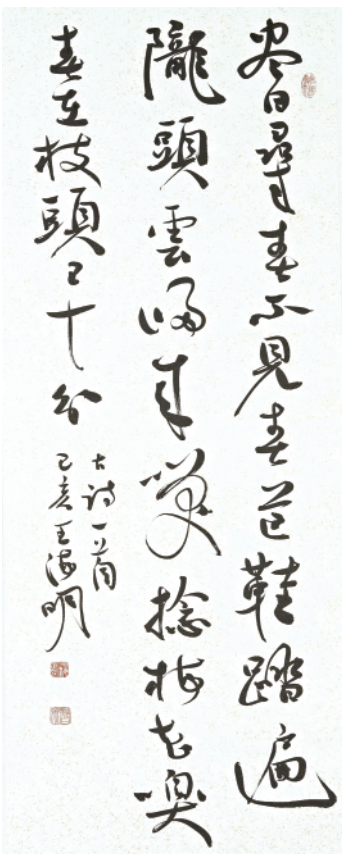 盡日尋春不見春芒鞋踏遍
隴頭雲歸來笑捻梅花嗅
春在枝頭已十分
古詩一首
己亥王海明